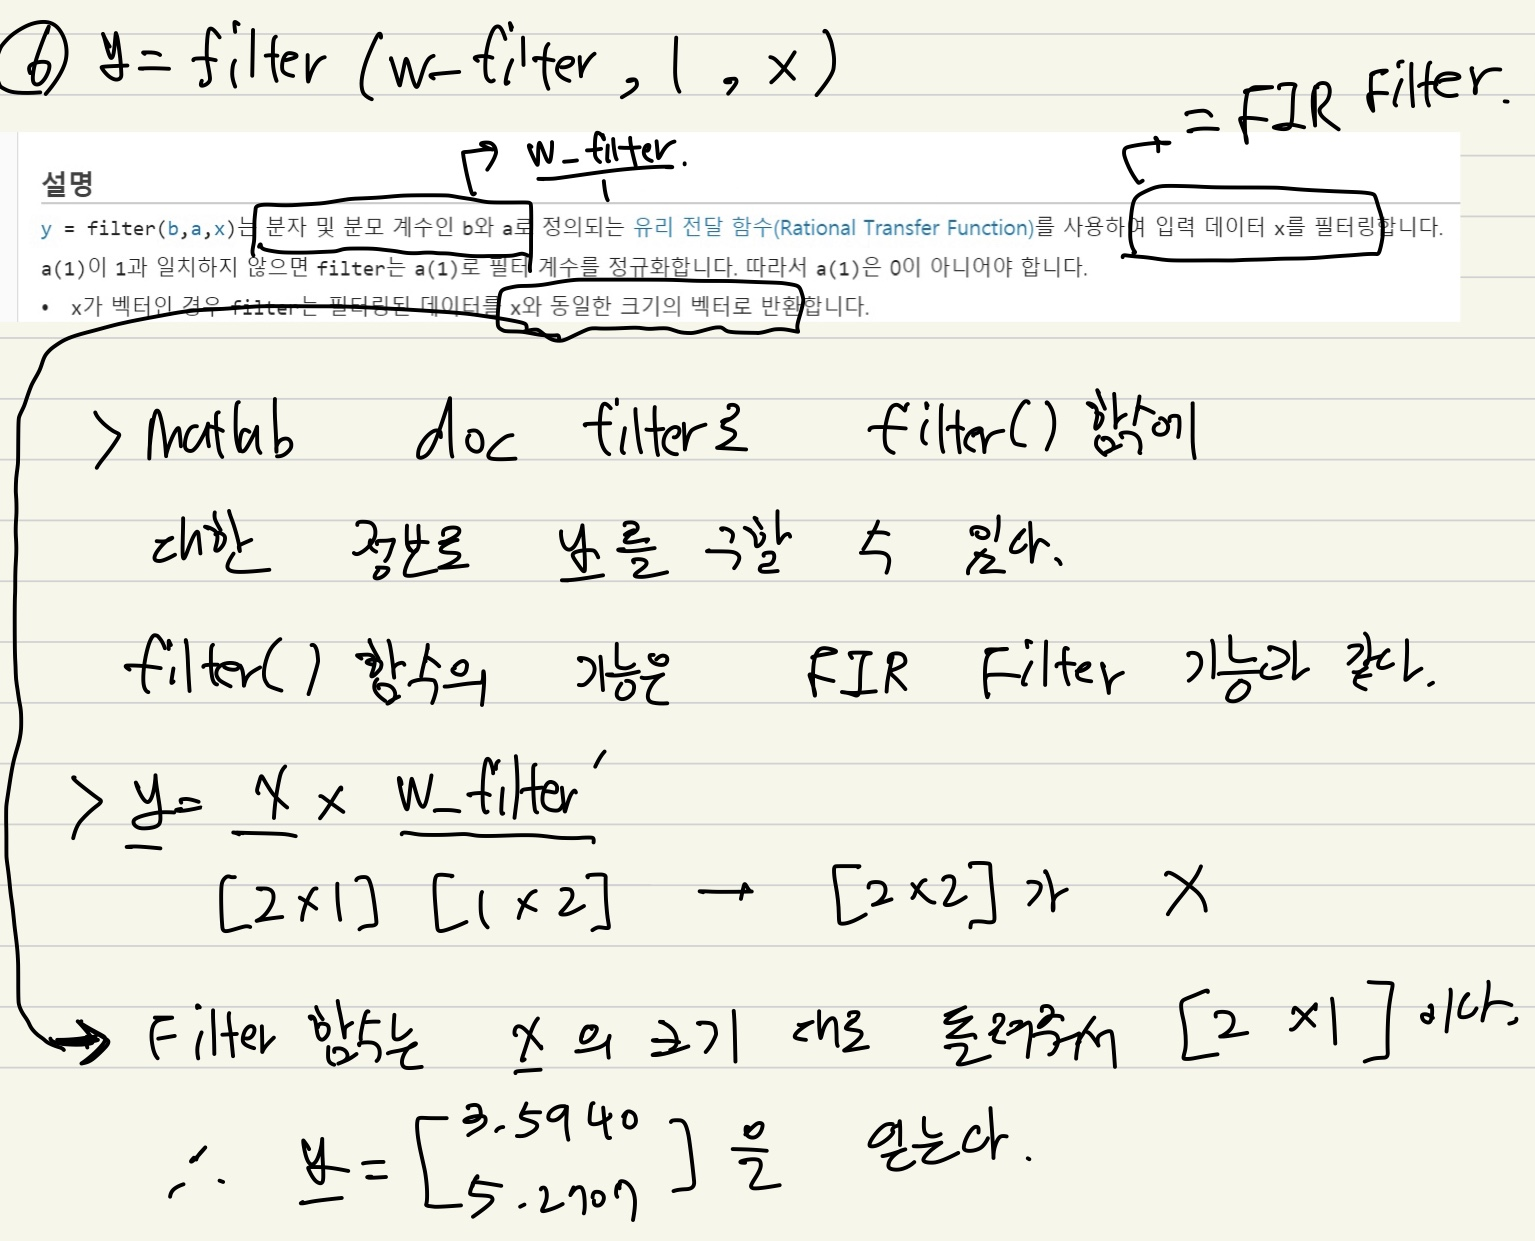 ⑥ y = filter (w_filter, 1, x)
= FIR Filter.
w_filter.
1
설명
y = filter(b,a,x)는 분자 및 분모 계수인 b와 a로 정의되는 유리 전달 함수(Rational Transfer Function)를 사용하여 입력 데이터 x를 필터링합니다.
a(1)이 1과 일치하지 않으면 filter는 a(1)로 필터 계수를 정규화합니다. 따라서 a(1)은 0이 아니어야 합니다.
• x가 벡터인 경우 filter는 필터링된 데이터를 x와 동일한 크기의 벡터로 반환합니다.
> Matlab doc filter로 filter() 함수에
대한 정보로 y를 구할 수 있다.
filter() 함수의 기능은 FIR Filter 기능과 같다.
> y = x × w_filter'
[2×1] [1×2] → [2×2]가 X
→ Filter 함수는 x의 크기 대로 돌려줘서 [2 ×1]이다.
∴ y = [3.5940
5.2707]을 얻는다.